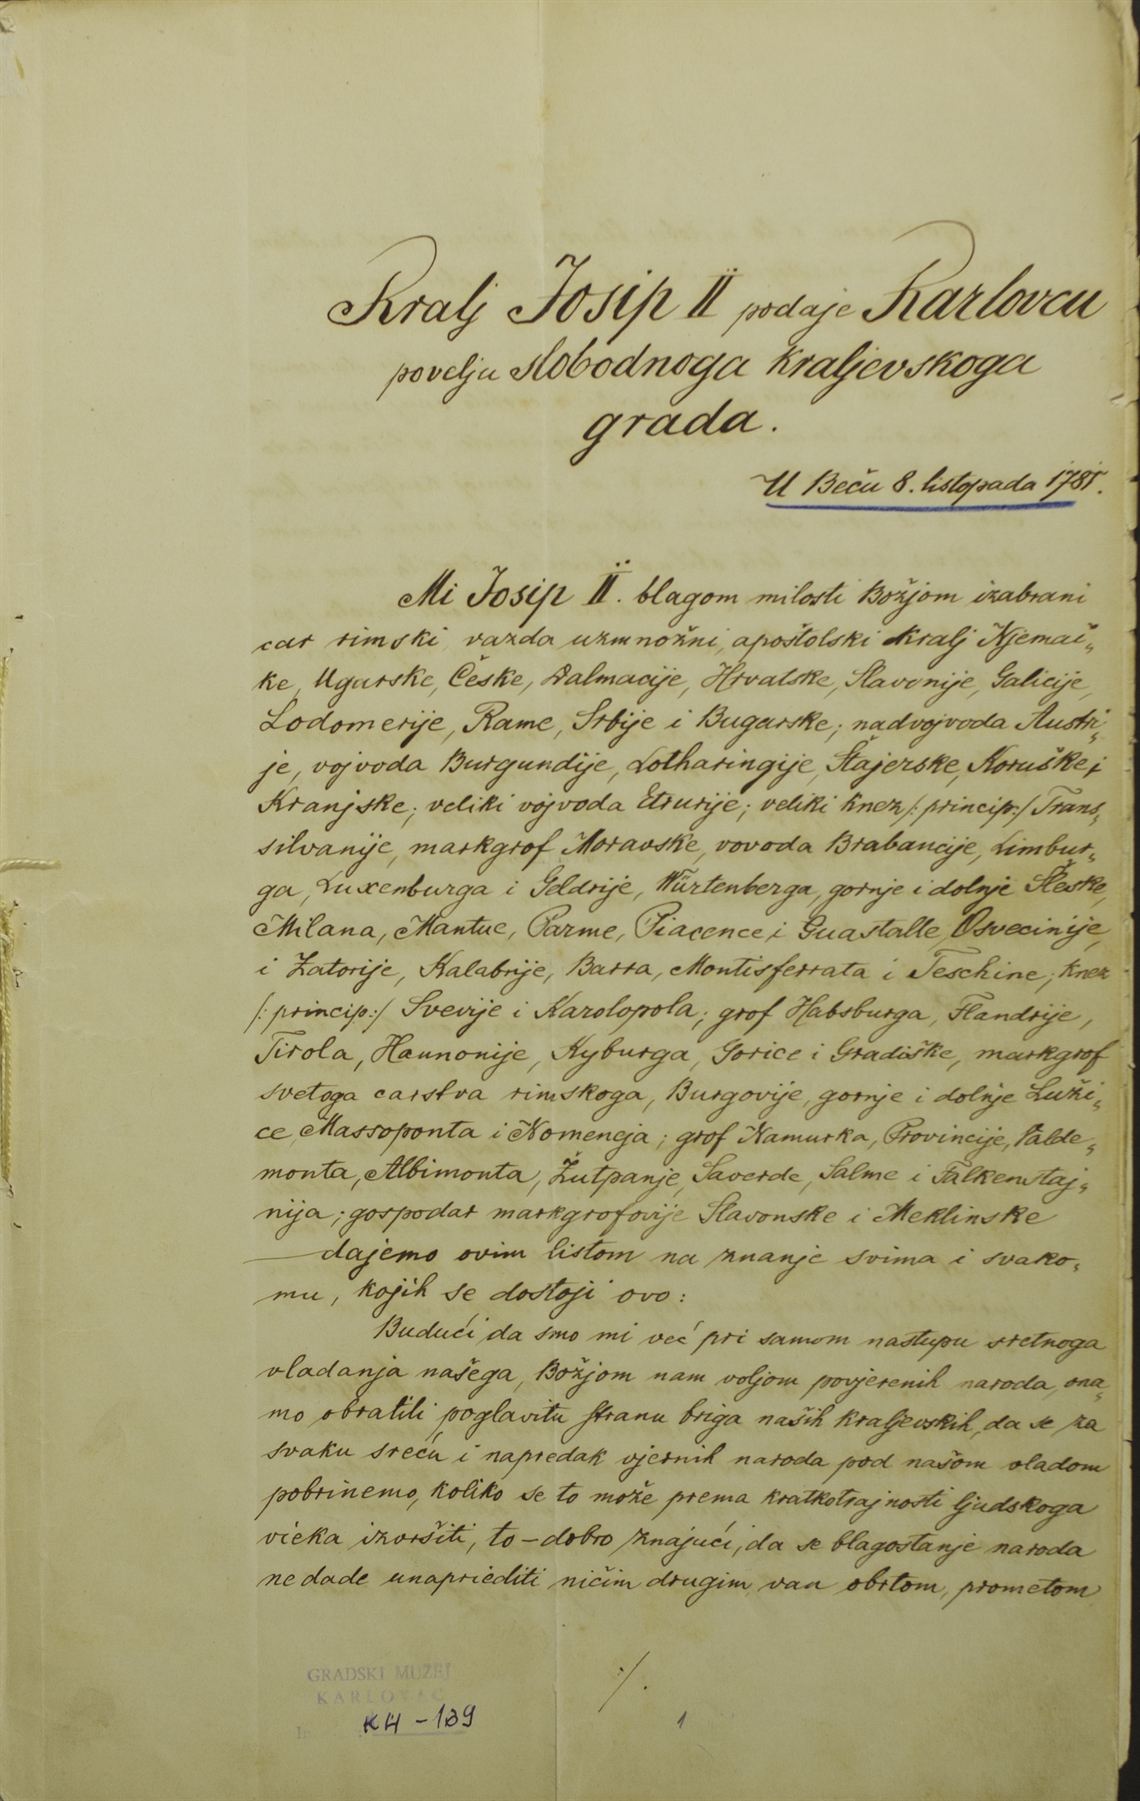 Kralj Josip II podaje Karlovcu
povelju slobodnoga kraljevskoga
grada.
U Beču 8. listopada 1781.
Mi Josip II. blagom milosti Božjom izabrani
car rimski, vazda uzmnožni, apoštolski kralj Njemač„
ke, Ugarske, Češke, Dalmacije, Hrvatske, Slavonije, Galicije,
Lodomerije, Rame, Srbije i Bugarske; nadvojvoda Austri„
je, vojvoda Burgundije, Lotharingije, Štajerske, Koruške i
Kranjske; veliki vojvoda Etrurije; veliki knez /:princip:/ Trans„
silvanije, markgrof Moravske, vovoda Brabancije, Limbur„
ga, Luxenburga i Geldrije, Würtenberga, gornje i dolnje Šleske,
Milana, Mantue, Parme, Piacence i Guastalle, Osvecinije,
i Zatorije, Kalabrije, Barra, Montisferrata i Teschine; knez
/:princip:/ Svevije i Karolopola; grof Habsburga, Flandrije,
Tirola, Hannonije, Kyburga, Gorice i Gradiške, markgrof
svetoga carstva rimskoga, Burgovije, gornje i dolnje Luži„
ce, Massoponta i Nomencja; grof Namurka, Provincije, Valde„
monta, Albimonta, Žutpanje, Saverde, Salme i Falkenstaj„
nija; gospodar markgrofovije Slavonske i Meklinske
— dajemo ovim listom na znanje svima i svako„
mu, kojih se dostoji ovo:
Budući da smo mi već pri samom nastupu sretnoga
vladanja našega, Božjom nam voljom povjerenih naroda, ona„
mo obratili poglavitu stranu briga naših kraljevskih, da se za
svaku sreću i napredak vjernih naroda pod našom vladom
pobrinemo, koliko se to može prema kratkotrajnosti ljudskoga
vieka izvršiti, to – dobro znajući, da se blagostanje naroda
ne dade unaprediti ničim drugim, van obrtom, prometom
·/.
GRADSKI MUZEJ
KARLOVAC
KH – 139
1